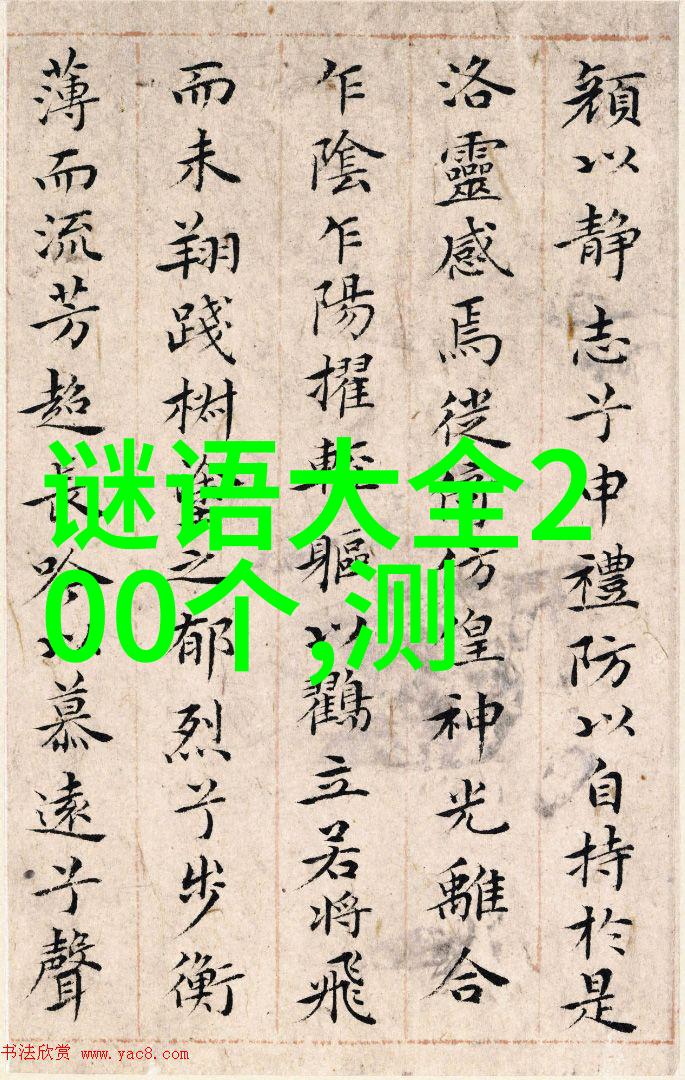 顔以静志兮申禮防以自持於是
洛靈感焉徙倚仿偟神光離合
乍陰乍陽擢輕軀以鸖立若將飛
而未翔踐椒塗之郁烈兮步衡
薄而流芳超長吟以慕遠兮聲
谜语大全2
00个,测
书法欣赏 www.yac8.com